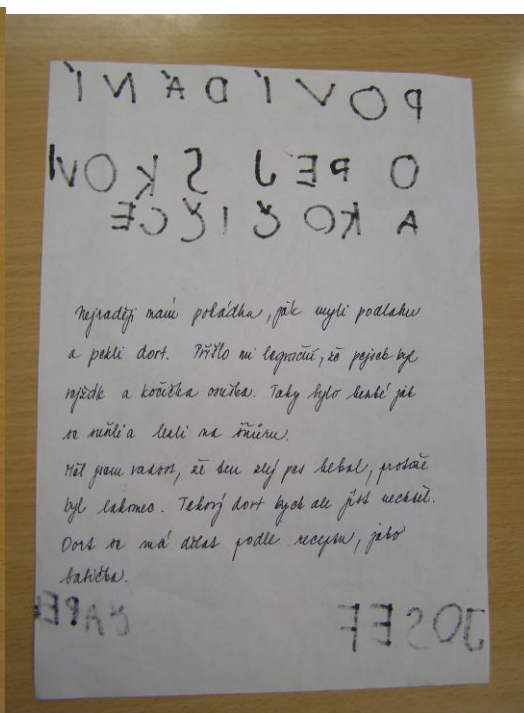 POVÍDÁNÍ
O PEJSKOVI
A KOČIČCE
Nejraději mám pohádku, jak myli podlahu
a pekli dort. Přišlo mi legrační, že pejsek byl
rejžák a kočička osuška. Taky bylo hezké jak
se sušili a lezli na šňůru.
Měl jsem radost, že ten zlej pes bebal, protože
byl lakomec. Takový dort bych ale jíst nechtěl.
Dort se má dělat podle receptu, jako
babička.
JOSEF ČAPEK